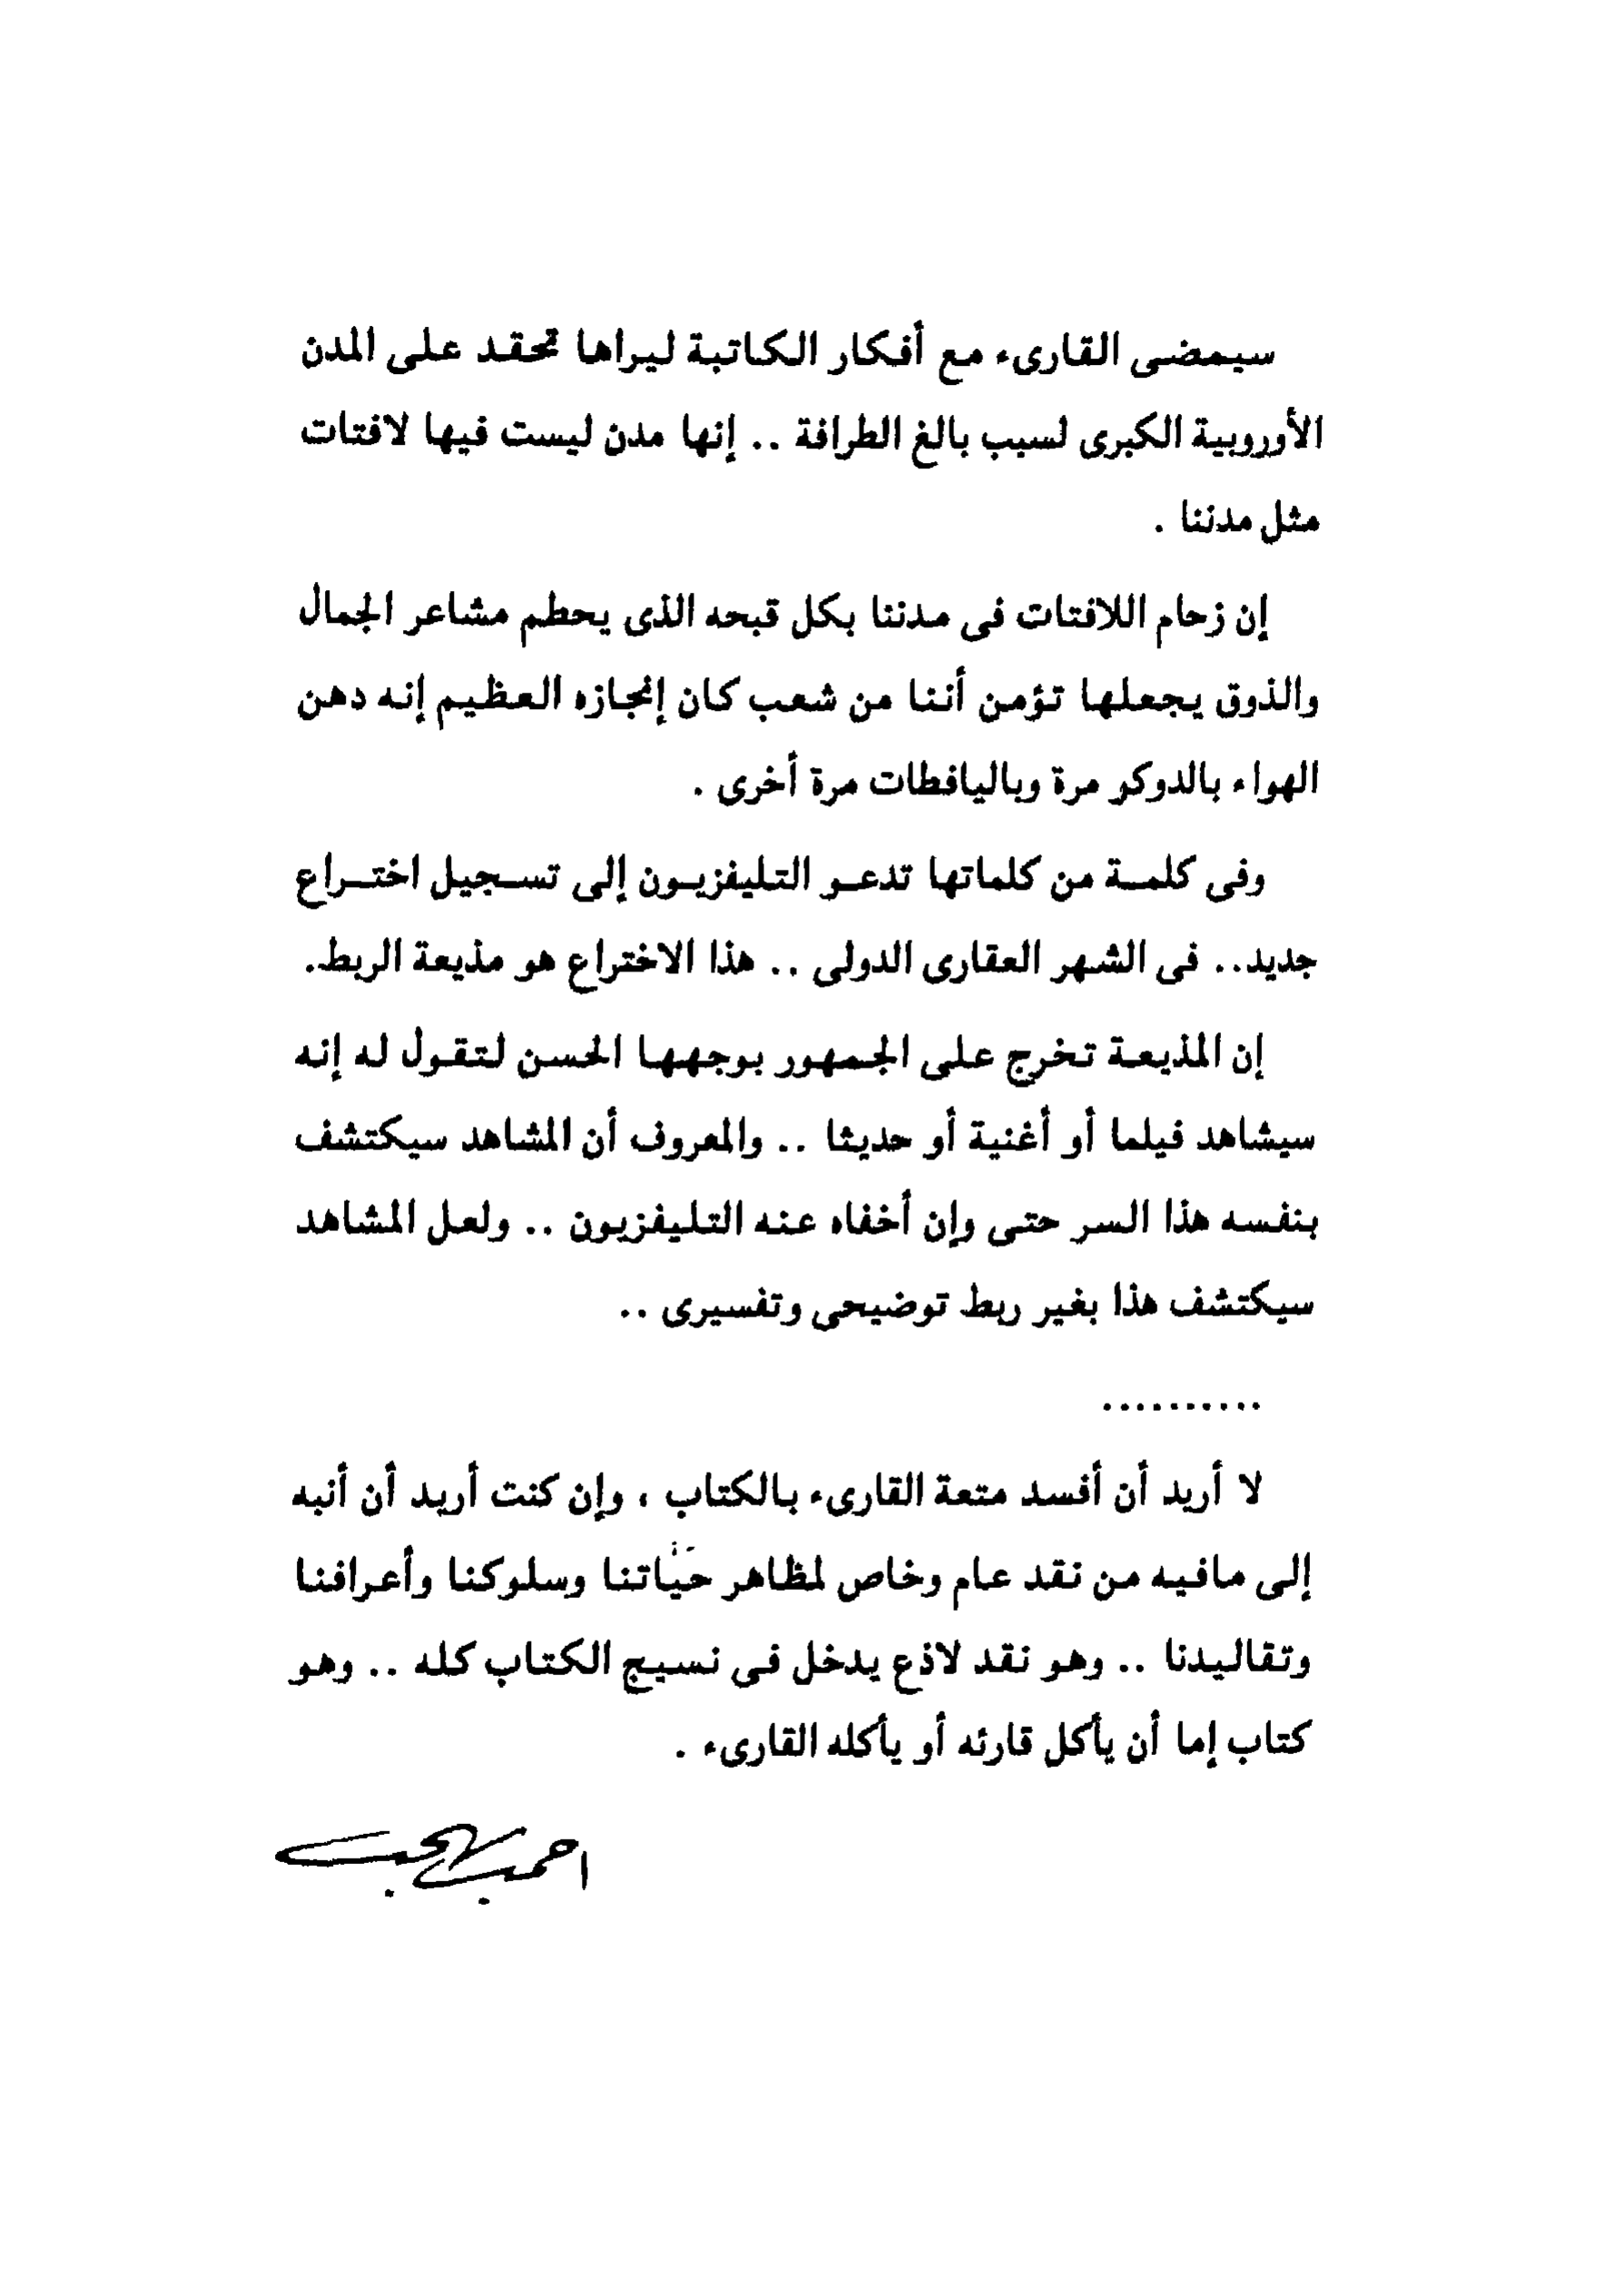 سيمضى القارىء مع أفكار الكاتبة ليراها تحقد على المدن
الأوروبية الكبرى لسبب بالغ الطرافة .. إنها مدن ليست فيها لافتات
مثل مدننا .
إن زحام اللافتات فى مدننا بكل قبحه الذى يحطم مشاعر الجمال
والذوق يجعلها تؤمن أننا من شعب كان إنجازه العظيم إنه دهن
الهواء بالدوكو مرة وباليافطات مرة أخرى .
وفى كلمة من كلماتها تدعو التليفزيون إلى تسجيل اختراع
جديد.. فى الشهر العقارى الدولى .. هذا الاختراع هو مذيعة الربط.
إن المذيعة تخرج على الجمهور بوجهها الحسن لتقول له إنه
سيشاهد فيلما أو أغنية أو حديثا .. والمعروف أن المشاهد سيكتشف
بنفسه هذا السر حتى وإن أخفاه عنه التليفزيون .. ولعل المشاهد
سيكتشف هذا بغير ربط توضيحى وتفسيرى ..
..........
لا أريد أن أفسد متعة القارىء بالكتاب ، وإن كنت أريد أن أنبه
إلى مافيه من نقد عام وخاص لمظاهر حياتنا وسلوكنا وأعرافنا
وتقاليدنا .. وهو نقد لاذع يدخل فى نسيج الكتاب كله .. وهو
كتاب إما أن يأكل قارئه أو يأكله القارىء .
احمد بهجت